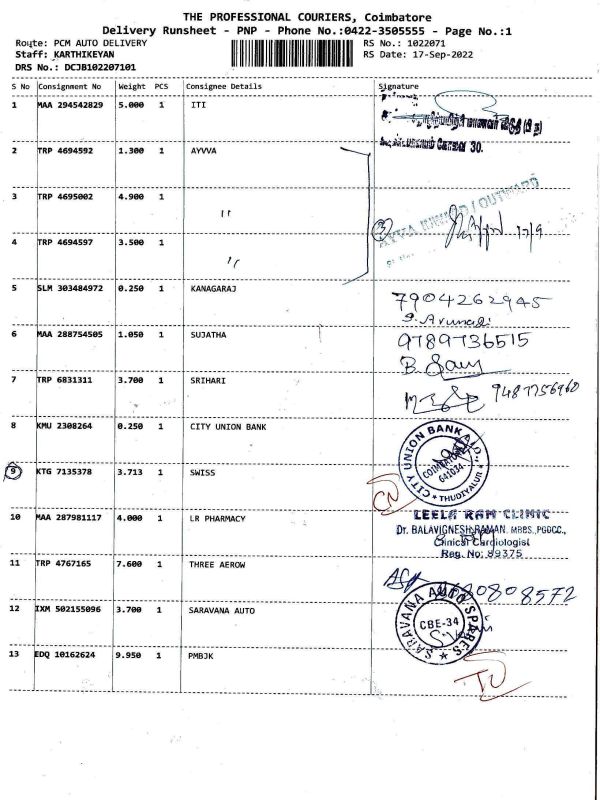 THE PROFESSIONAL COURIERS, Coimbatore
Delivery Runsheet - PNP - Phone No.:0422-3505555 - Page No.:1
Route: PCM AUTO DELIVERY
RS No.: 1022071
Staff: KARTHIKEYAN
RS Date: 17-Sep-2022
DRS No.: DCJB102207101
S No Consignment No Weight PCS Consignee Details Signature
1 MAA 294542829 5.000 1 ITI
கோவை 30.
2 TRP 4694592 1.300 1 AYVVA
3 TRP 4695002 4.900 1 "
3 AYVA INWARD / OUTWARD
17/9
4 TRP 4694597 3.500 1 "
5 SLM 303484972 0.250 1 KANAGARAJ
7904262945
6 MAA 288754505 1.050 1 SUJATHA
9789736515
B.
7 TRP 6831311 3.700 1 SRIHARI
9487756960
8 KMU 2308264 0.250 1 CITY UNION BANK
CITY UNION BANK LTD.,
COIMBATORE
641034
THUDIYALUR
9 KTG 7135378 3.713 1 SWISS
10 MAA 287981117 4.000 1 LR PHARMACY
LEELA RAM CLINIC
Dr. BALAVIGNESH RAMAN. MBBS.,PGDCC.,
Clinical Cardiologist
Reg. No: 89375
11 TRP 4767165 7.600 1 THREE AEROW
12 IXM 502155096 3.700 1 SARAVANA AUTO
SARAVANA AUTO SPARES
CBE-34
13 EDQ 10162624 9.950 1 PMBJK